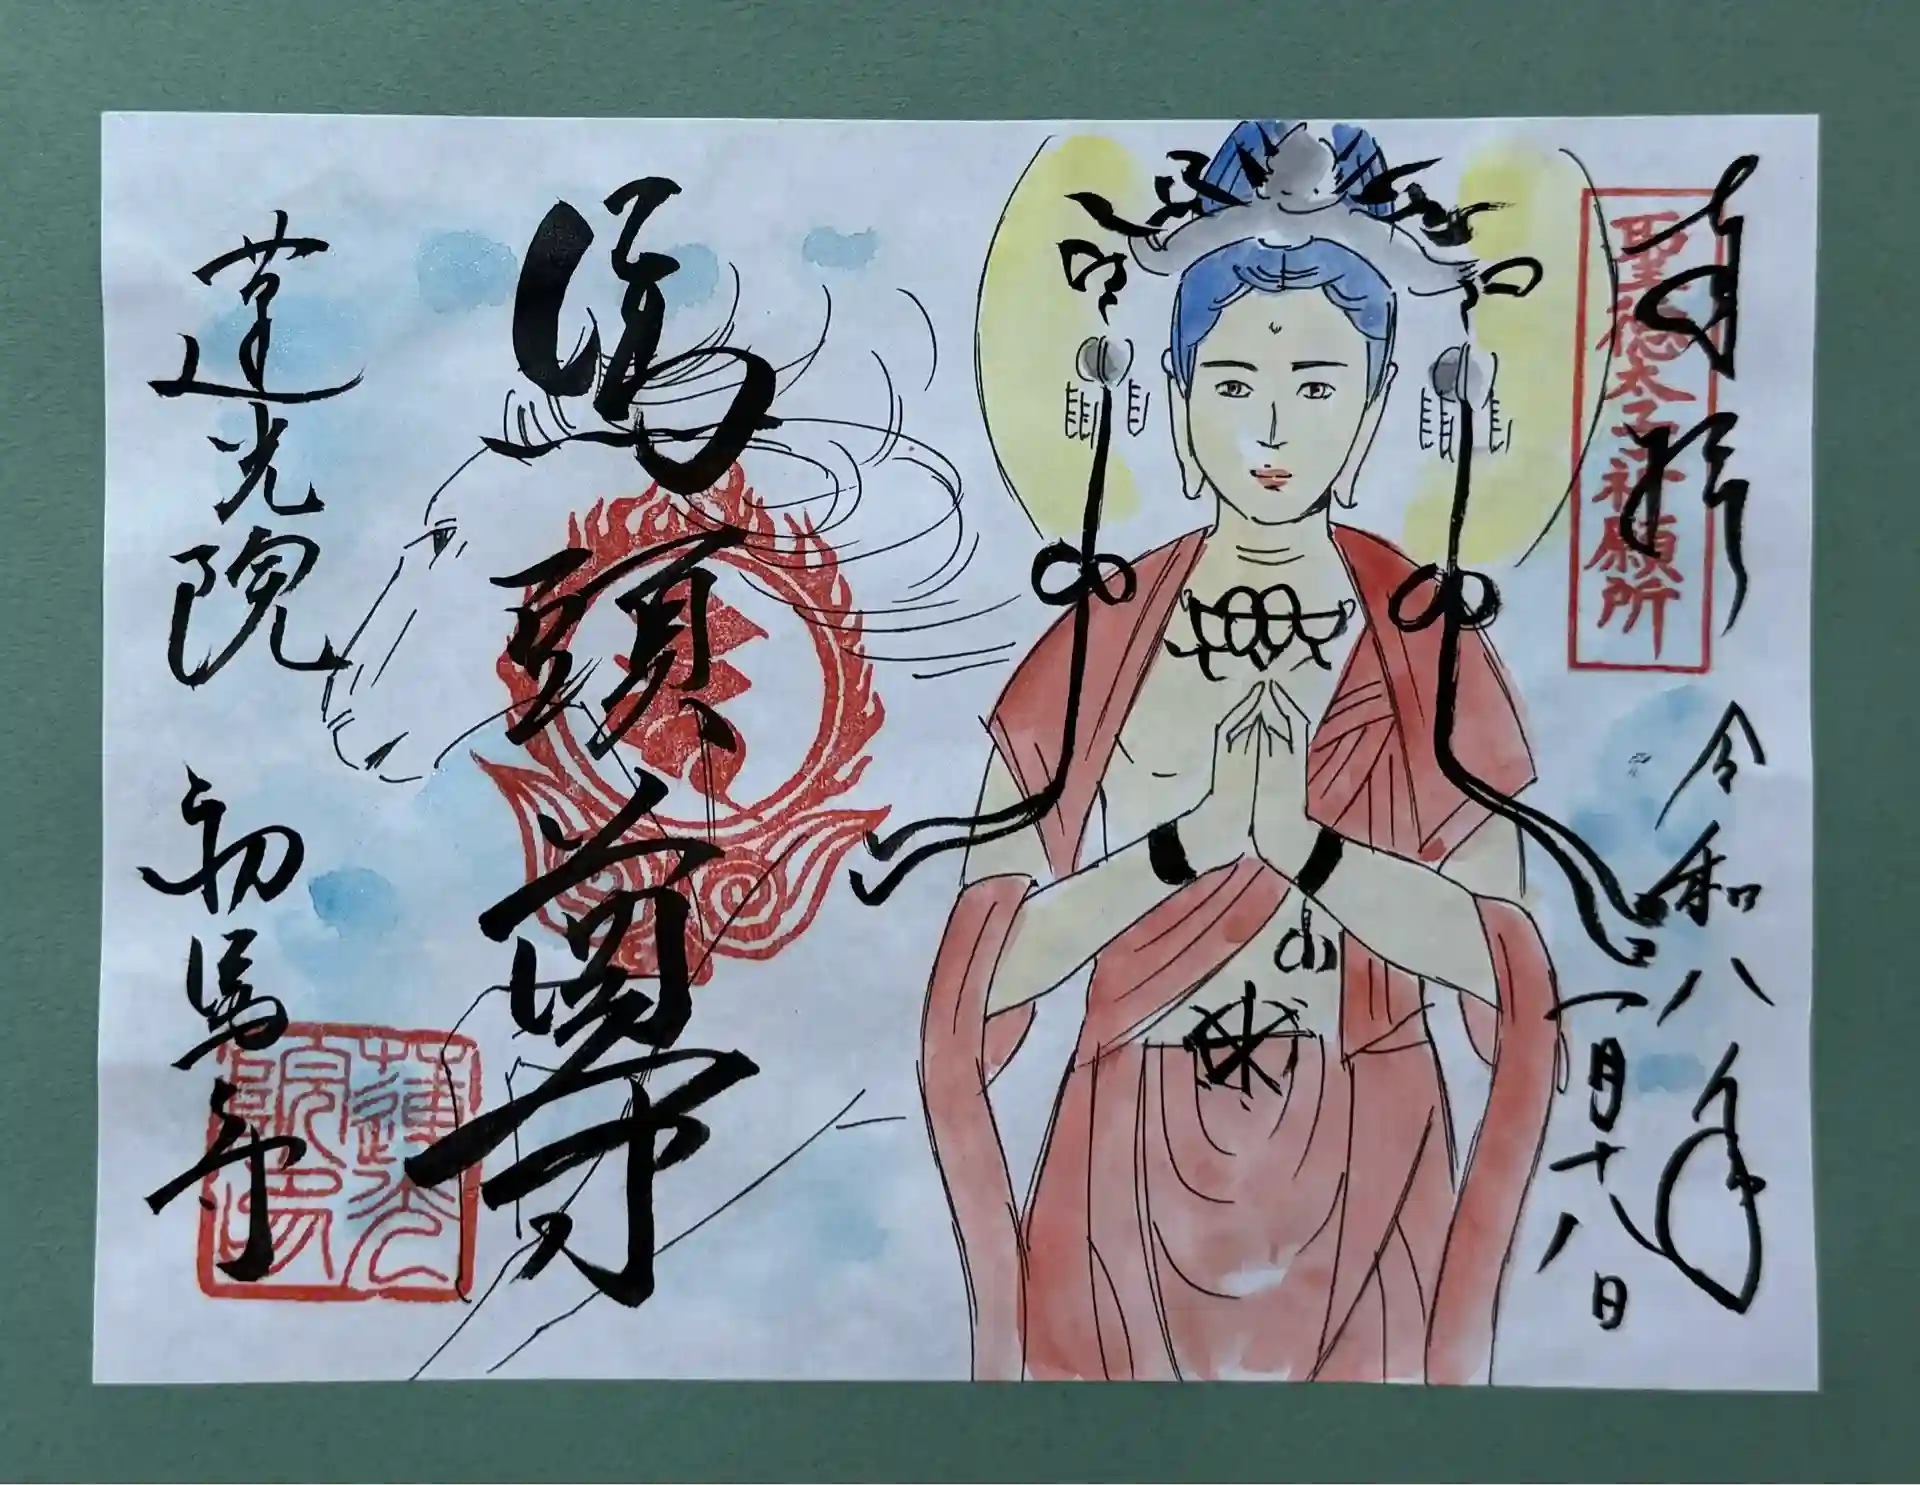 奉拝
聖徳太子祈願所
令和八年
一月十八日
馬頭尊
蓮光院 初馬寺
蓮光
院印